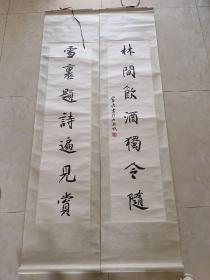 林間飲酒獨令隨
雪裏題詩遍見賞